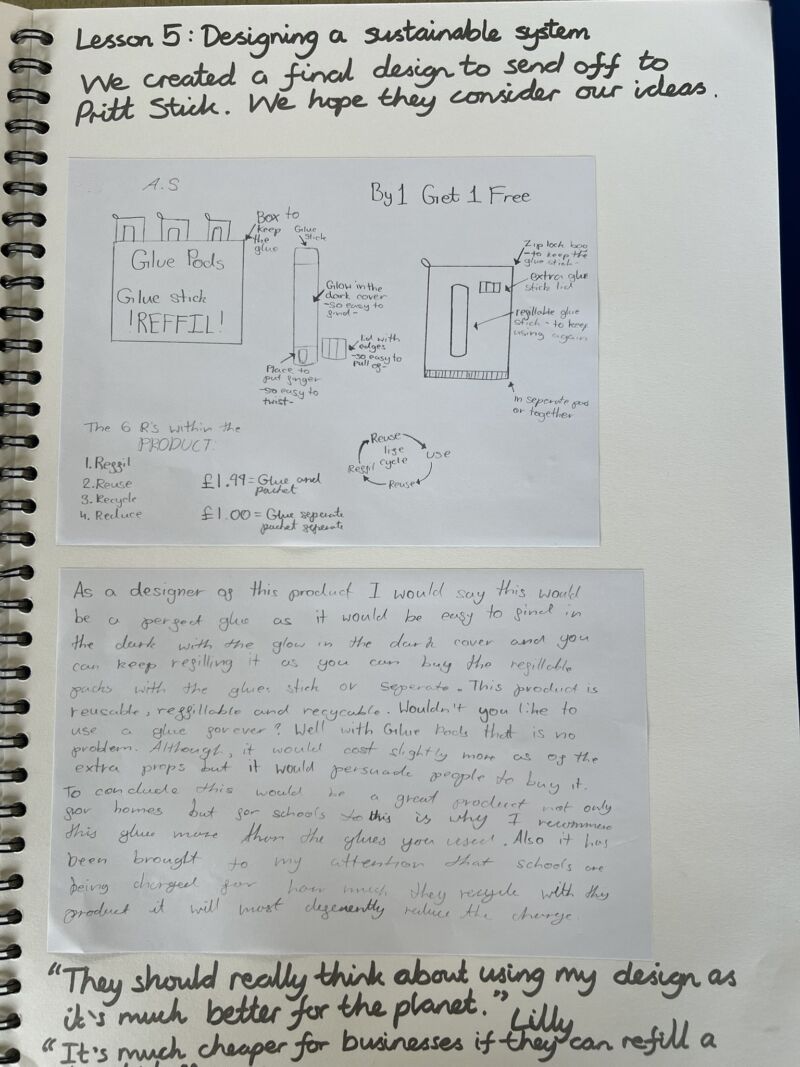 Lesson 5: Designing a sustainable system
We created a final design to send off to
Pritt Stick. We hope they consider our ideas.
A.S
By 1 Get 1 Free
Box to
keep
the
glue
Glue Pods
Glue stick
!REFFIL!
Glue
Stick
Glow in the
dark cover
-so easy to
find-
Lid with
edges
-so easy to
pull of-
Place to
put finger
-so easy to
twist-
Zip lock bag
-to keep the
glue stick-
extra glue
stick lid
refillable glue
stick - to keep
using again
in seperate
or together
The 6 R's within the
PRODUCT:
1. Reffil
2. Reuse
3. Recycle
4. Reduce
£1.99 = Glue and
packet
£1.00 = Glue seperate
packet seperate
Reuse
life
cycle
use
Reuse
Reffil
As a designer of this product I would say this would
be a perfect glue as it would be easy to find in
the dark with the glow in the dark cover and you
can keep refilling it as you can buy the refillable
packs with the glues stick or seperate. This product is
reusable, reffillable and recycable. Wouldn't you like to
use a glue forever? Well with Glue Pods that is no
problem. Although, it would cost slightly more as of the
extra props but it would persuade people to buy it.
To conclude this would be a great product not only
for homes but for schools to this is why I recommen
this glue more than the glues you used. Also it has
been brought to my attention that schools are
being charged for how much they recycle with thy
product it will most degenently reduce the charge.
"They should really think about using my design as
it's much better for the planet." Lilly
"It's much cheaper for businesses if they can refill a